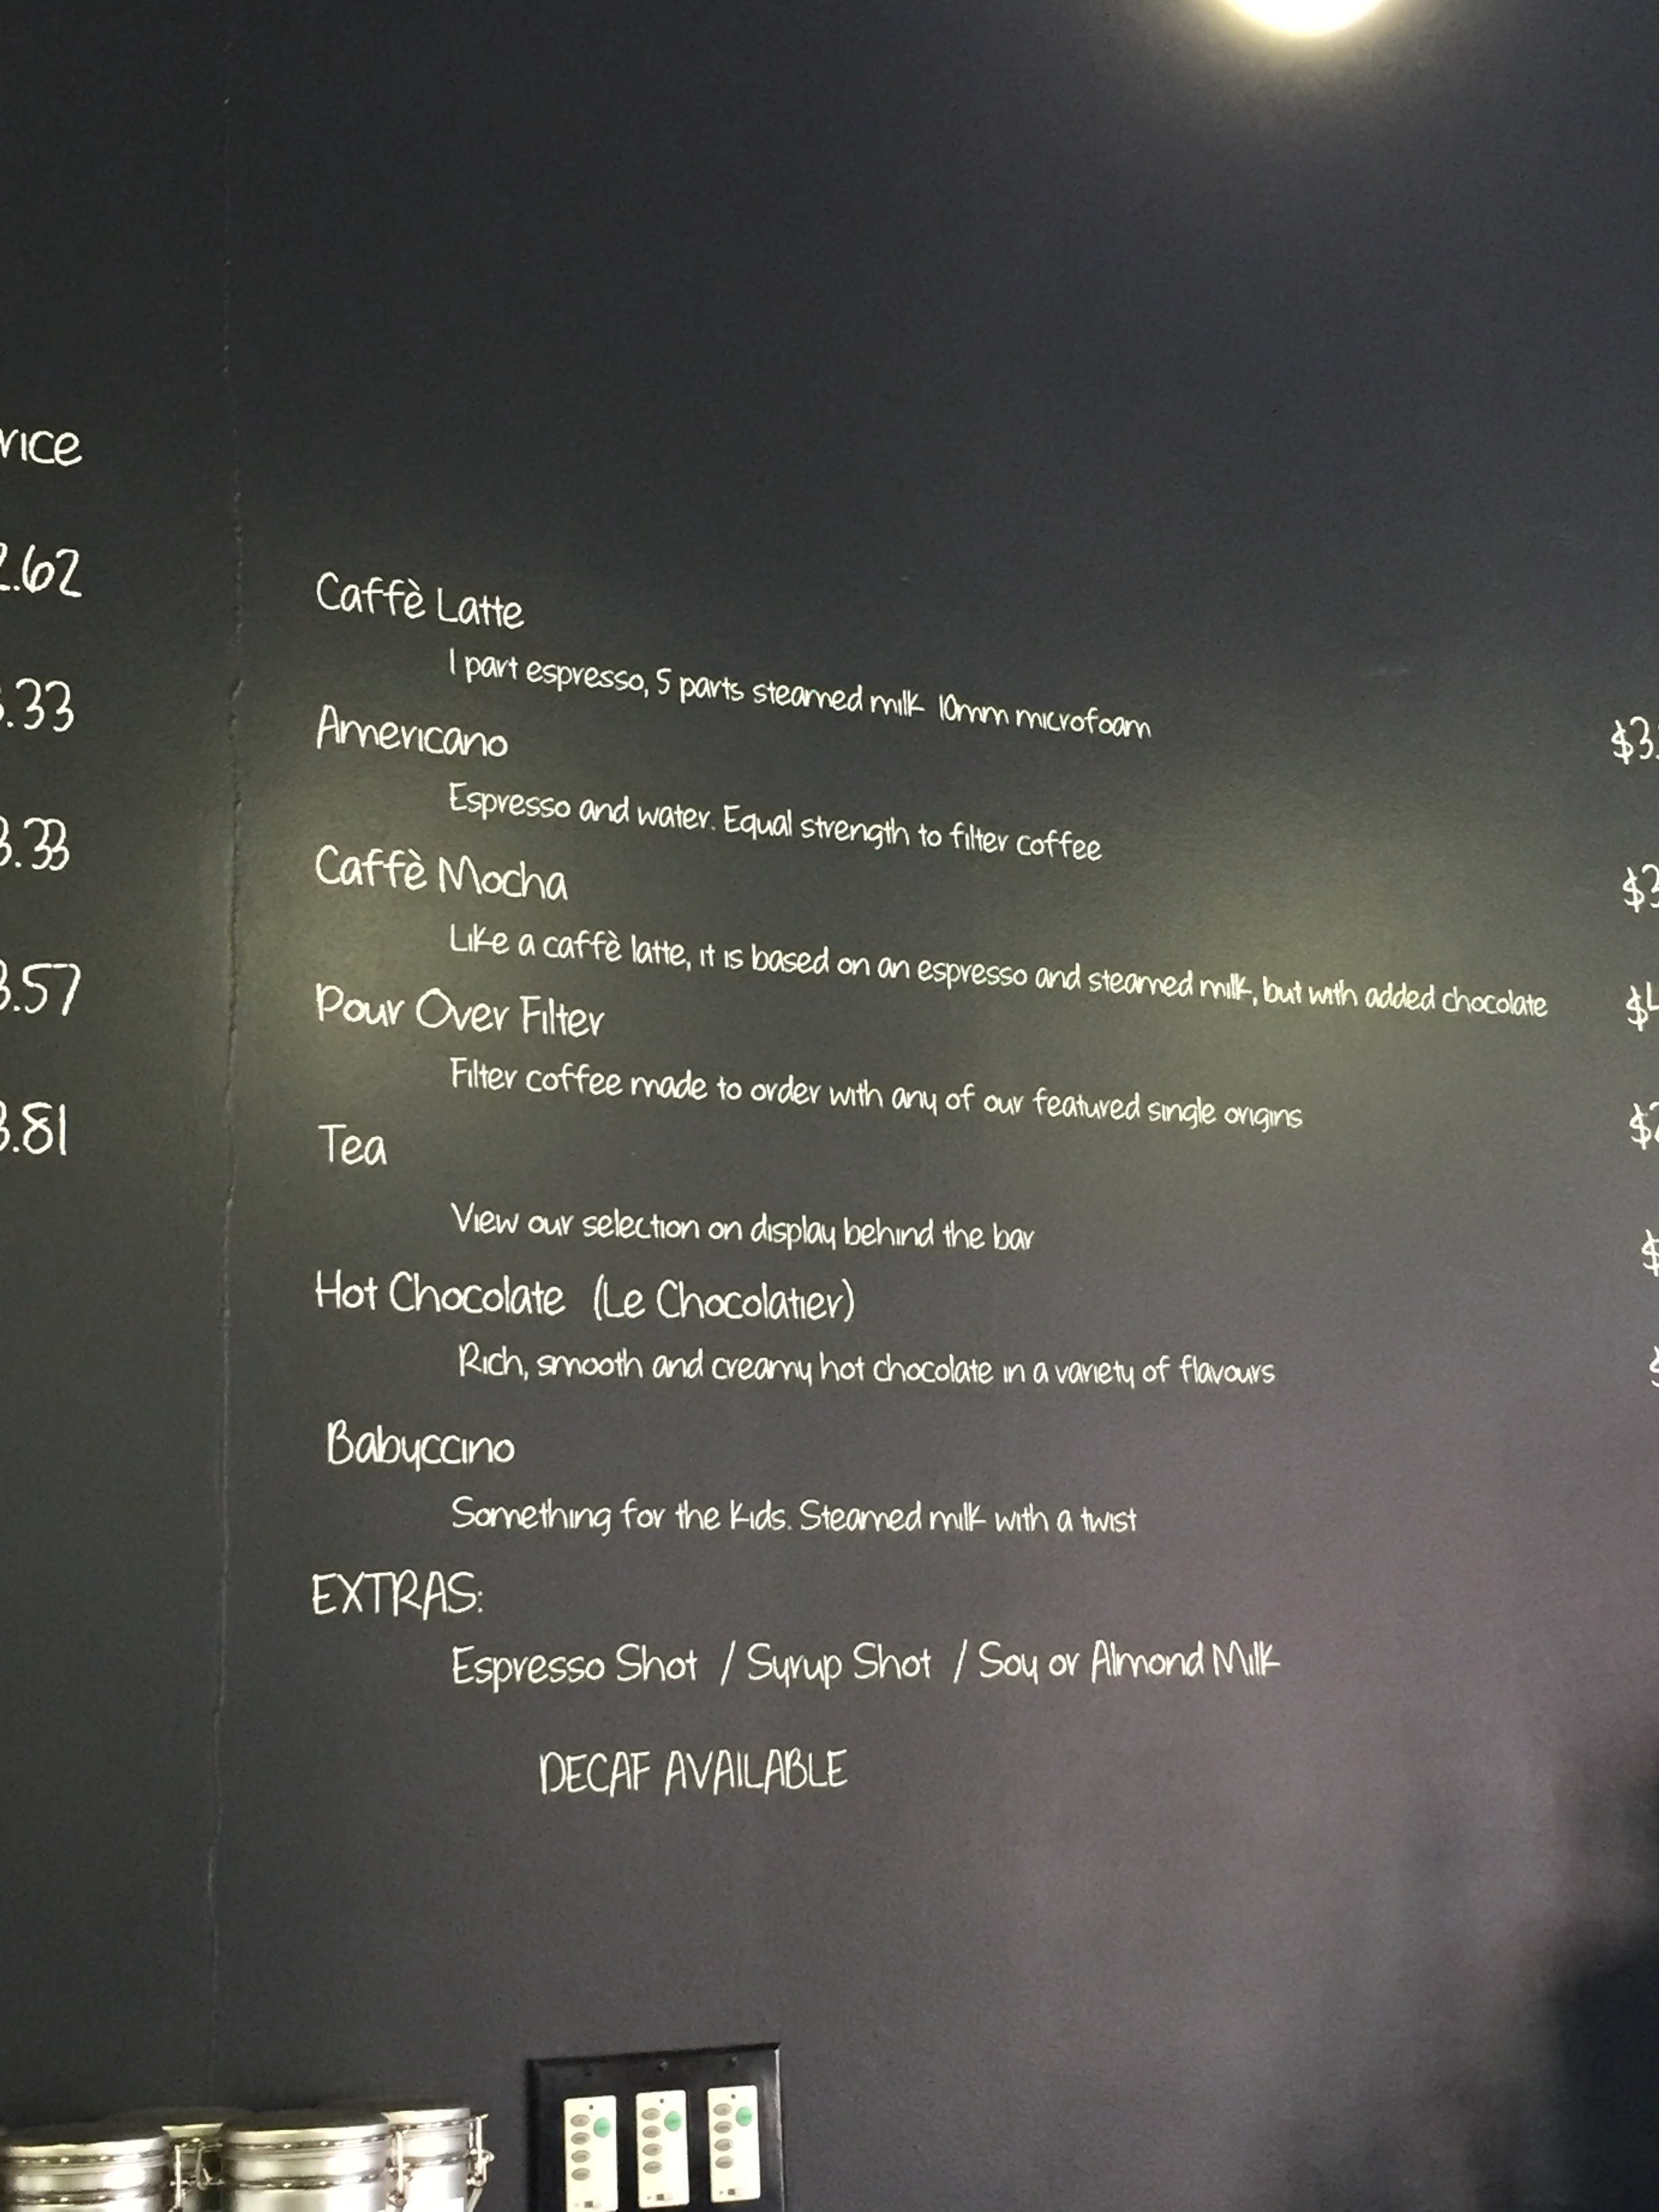 2.62
.33
3.33
3.57
3.81
Caffè Latte
1 part espresso, 5 parts steamed milk 10mm microfoam
Americano
Espresso and water. Equal strength to filter coffee
Caffè Mocha
Like a caffè latte, it is based on an espresso and steamed milk, but with added chocolate
Pour Over Filter
Filter coffee made to order with any of our featured single origins
Tea
View our selection on display behind the bar
Hot Chocolate (Le Chocolatier)
Rich, smooth and creamy hot chocolate in a variety of flavours
Babyccino
Something for the kids. Steamed milk with a twist
EXTRAS:
Espresso Shot / Syrup Shot / Soy or Almond Milk
DECAF AVAILABLE
$3.
$3
$4